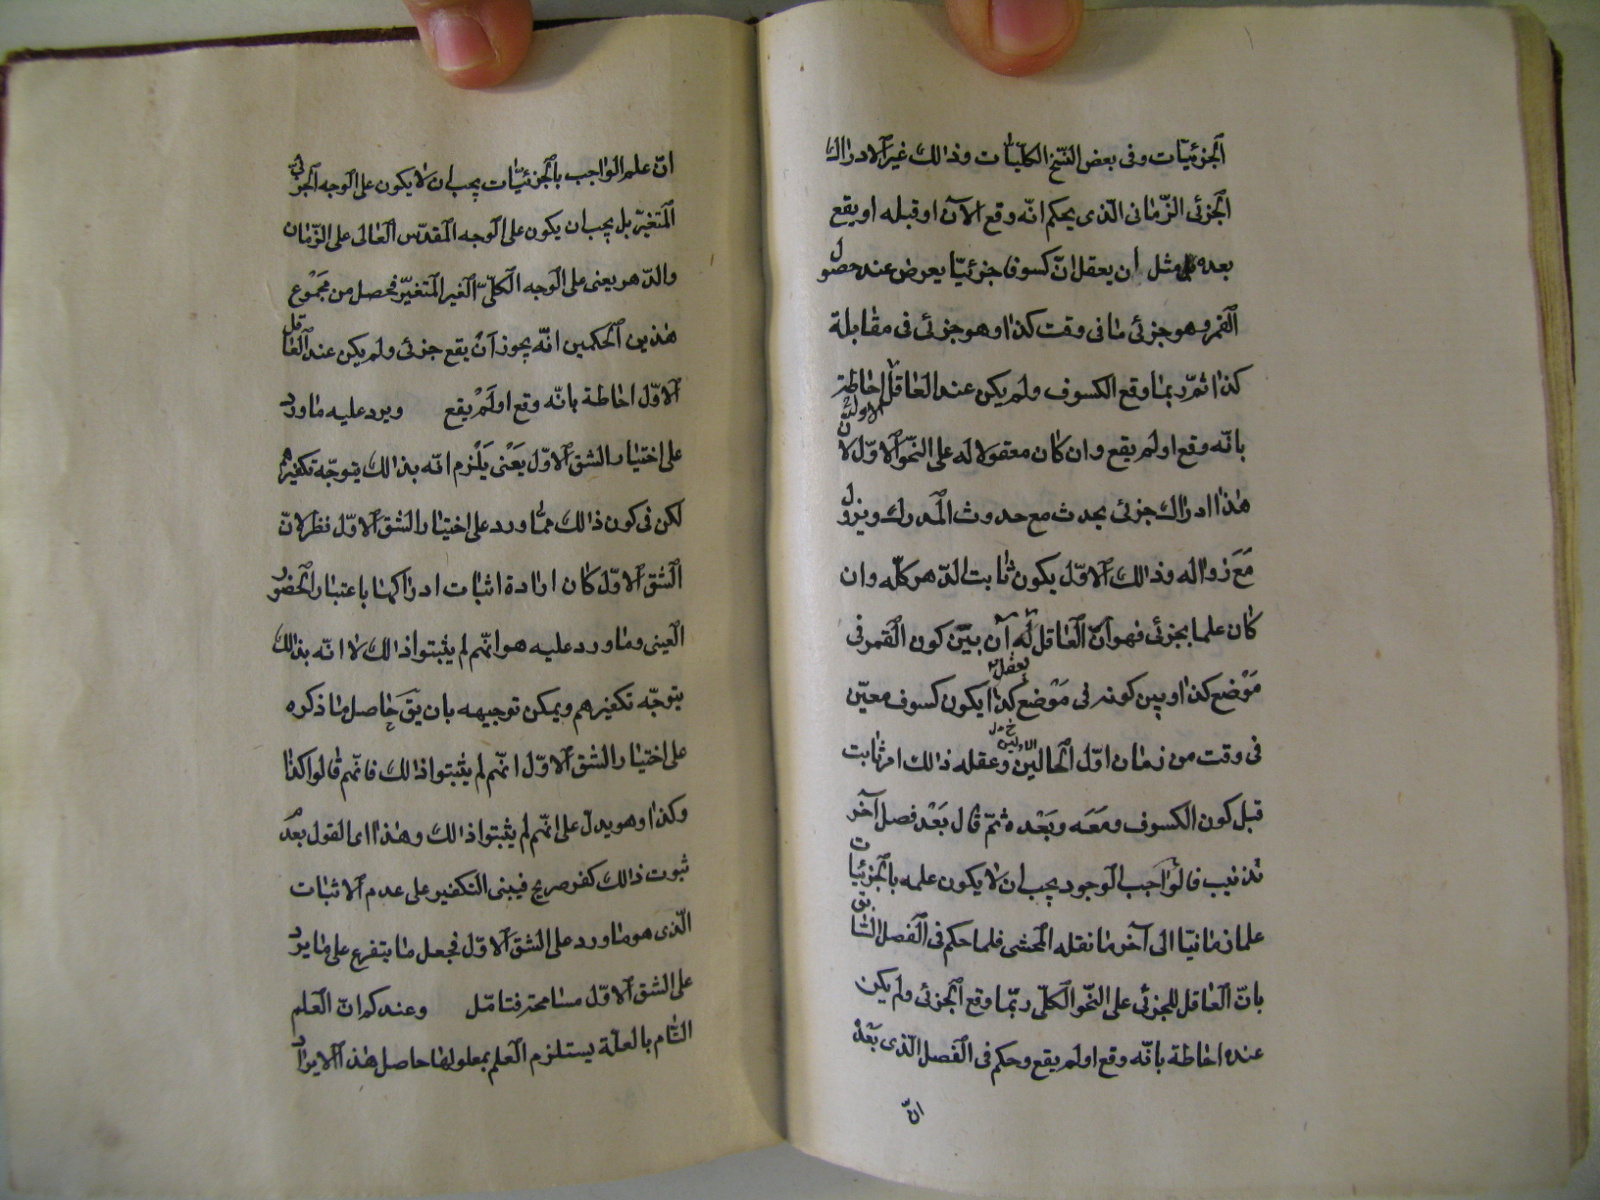 الجزئيّات وفى بعض النّسخ الكلّيّات وذالك غير الادراك
الجزئى الزّمانى الّذى يحكم انّه وقع الآن او قبله او يقع
بعده مثل ان يعقل انّ كسوفا جزئيّا يعرض عند حصول
القمر وهو جزئى ما فى وقت كذا وهو جزئى فى مقابلة
كذا ثمّ ربما وقع الكسوف ولم يكن عند العاقل الاول احاطة
بانّه وقع او لم يقع وان كان معقولا له على النّحو الاوّل لانّ
هذا ادراك جزئى يحدث مع حدوث المدرك ويزول
مع زواله وذالك الاوّل يكون ثابت الدّهر كلّه وان
كان علما بجزئى فهو انّ العاقل له ان بين كون القمر فى
يعقل
موضع كذا وبين كونه فى موضع كذا يكون كسوف معيّن
فى وقت من زمان اوّل الحالين وعقله ذالك امر ثابت
الاولين
قبل كون الكسوف ومعه وبعده ثمّ قال بعد فصل آخر
تذنيب فالواجب الوجود يجب ان لا يكون علمه بالجزئيات
علما زمانيّا الى آخر ما نقله المحشى فلما حكم فى الفصل السّابق
بانّ العاقل للجزئى على النّحو الكلّى ربّما وقع الجزئى ولم يكن
عنده احاطة بانّه وقع او لم يقع وحكم فى الفصل الّذى بعدْ
انّ
انّ علم الواجب بالجزئيّات يجب ان لا يكون على الوجه الجزئى
المتغيّر بل يجب ان يكون على الوجه المقدّس العالى على الزّمان
والدّهر يعنى على الوجه الكلّى الغير المتغيّر فحصل من مجموع
هذين الحكمين انّه يجوز ان يقع جزئى ولم يكن عند العاقل
الاوّل احاطة بانّه وقع او لم يقع ويرد عليه ما ورد
على اختيار الشق الاوّل يعنى يلزم انّه بذالك يتوجّه تكفيرهم
لكن فى كون ذالك ممّا ورد على اختيار الشق الاوّل نظر لانّ
الشق الاوّل كان ارادة اثبات ادراكها باعتبار الحضور
العينى وما ورد عليه هو انّهم لم يثبتوا ذالك لا انّه بذالك
يتوجّه تكفيرهم ويمكن توجيهه بان يقَ حاصل ما ذكره
على اختيار الشق الاوّل انّهم لم يثبتوا ذالك فانّهم قالوا كذا
وكذا وهو يدل على انّهم لم يثبتوا ذالك وهذا اى القول بعدم
ثبوت ذالك كفر صريح فيبنى التكفير على عدم الاثبات
الّذى هو ما ورد على الشق الاوّل فجعل ما يتفرع على ما يرد
على الشق الاوّل مسامحة فتامّل وعندكم انّ العلم
التّام بالعلّة يستلزم العلم بمعلولها حاصل هذا الايراد